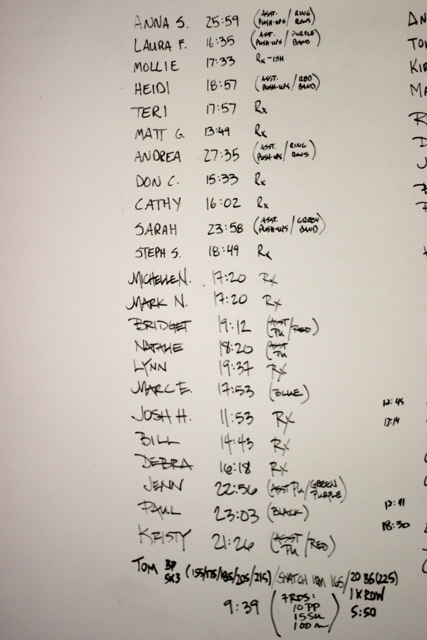 ANNA S. 25:59 (ASST. PUSH-UPS / RING ROWS)
LAURA F. 16:35 (ASST. PUSH-UPS / PURPLE BAND)
MOLLIE 17:33 Rx-ISH
HEIDI 18:57 (ASST. PUSH-UPS / RED BAND)
TERI 17:57 Rx
MATT G. 13:49 Rx
ANDREA 27:35 (ASST. PUSH-UPS / RING ROWS)
DON C. 15:33 Rx
CATHY 16:02 Rx
SARAH 23:58 (ASST. PUSH-UPS / GREEN BAND)
STEPH S. 18:49 Rx
MICHELLE N. 17:20 RX
MARK N. 17:20 RX
BRIDGET 19:12 (ASST PU/RED)
NATALIE 18:20 (ASST PU
LYNN 19:37 RX
MARC E. 17:53 (BLUE)
12:45
JOSH H. 11:53 RX
13:14
BILL 14:43 RX
DEBRA 16:18 RX
JENN 22:56 (ASST PU/GREEN PURPLE)
PAUL 23:03 (BLACK)
12:11
18:30
KRISTY 21:26 (ASST PU/RED)
TOM BP 5X3 (155/175/185/205/215) / SNATCH 1RM 165 / 20 BS(225)
1K ROW
9:39 (7 RDS: 5:50
10 PP
15 SU
100 m)